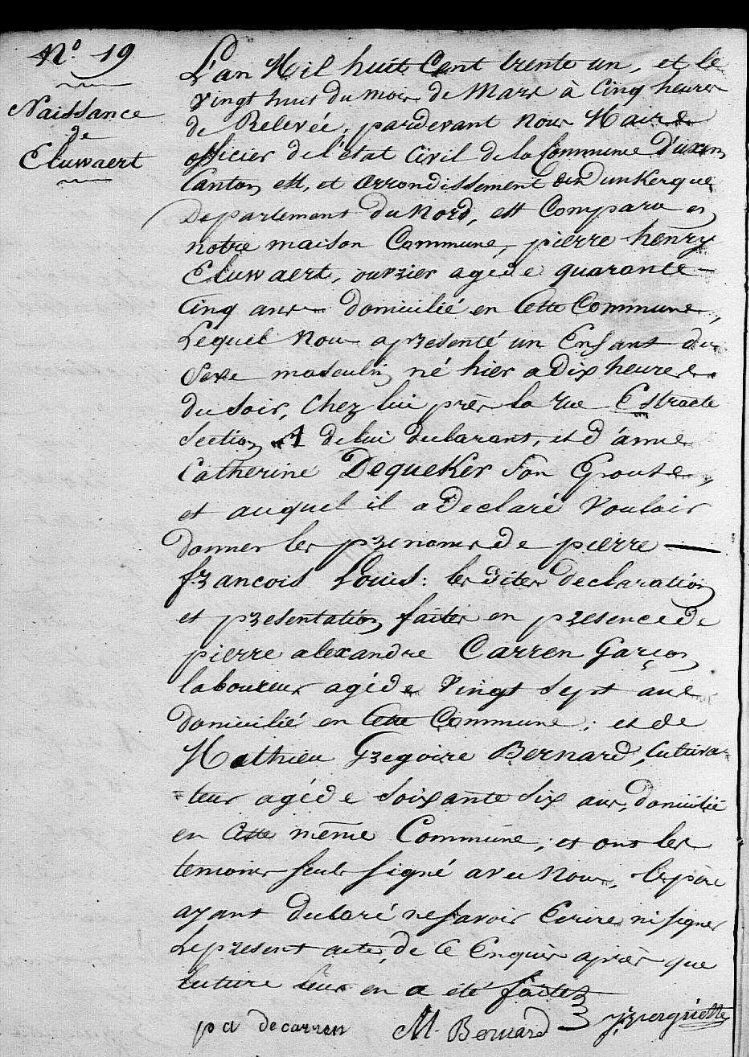 N.º 19
Naissance
de
Eluwaert
L'an Mil huit Cent trente un, et le
vingt huit du mois de Mars à Cinq heures
de Relevée, pardevant nous Maire
officier de l'état Civil de la Commune
Canton est, et arrondissement de Dunkerque
Departement du Nord, est Comparu en
notre maison Commune, pierre henry
Eluwaert, ouvrier agé de quarante
Cinq ans domicilié en Cette Commune,
Lequel Nous a presenté un Enfant du
Sexe masculin, né hier a Dix heures
du soir, Chez lui près la rue
Section A de lui declarant, et d'anne
Catherine Dequeker Son Epouse,
et auquel il a Declaré Vouloir
donner les prenoms de pierre —
françois Louis : les dites declaration
et presentation faites en presence de
pierre alexandre Carren Garçon
laboureur agé de vingt Sept ans
domicilié en Cette Commune ; et de
Mathieu Gregoire Bernard, Cultiva-
-teur agé de Soixante Six ans, domicilié
en Cette même Commune ; et ont les
temoins seuls signé avec nous, le père
ayant declaré ne savoir Ecrire ni signer
Le present acte, de ce Enquis après que
lecture leur en a eté faite
pa decarren M. Bernard